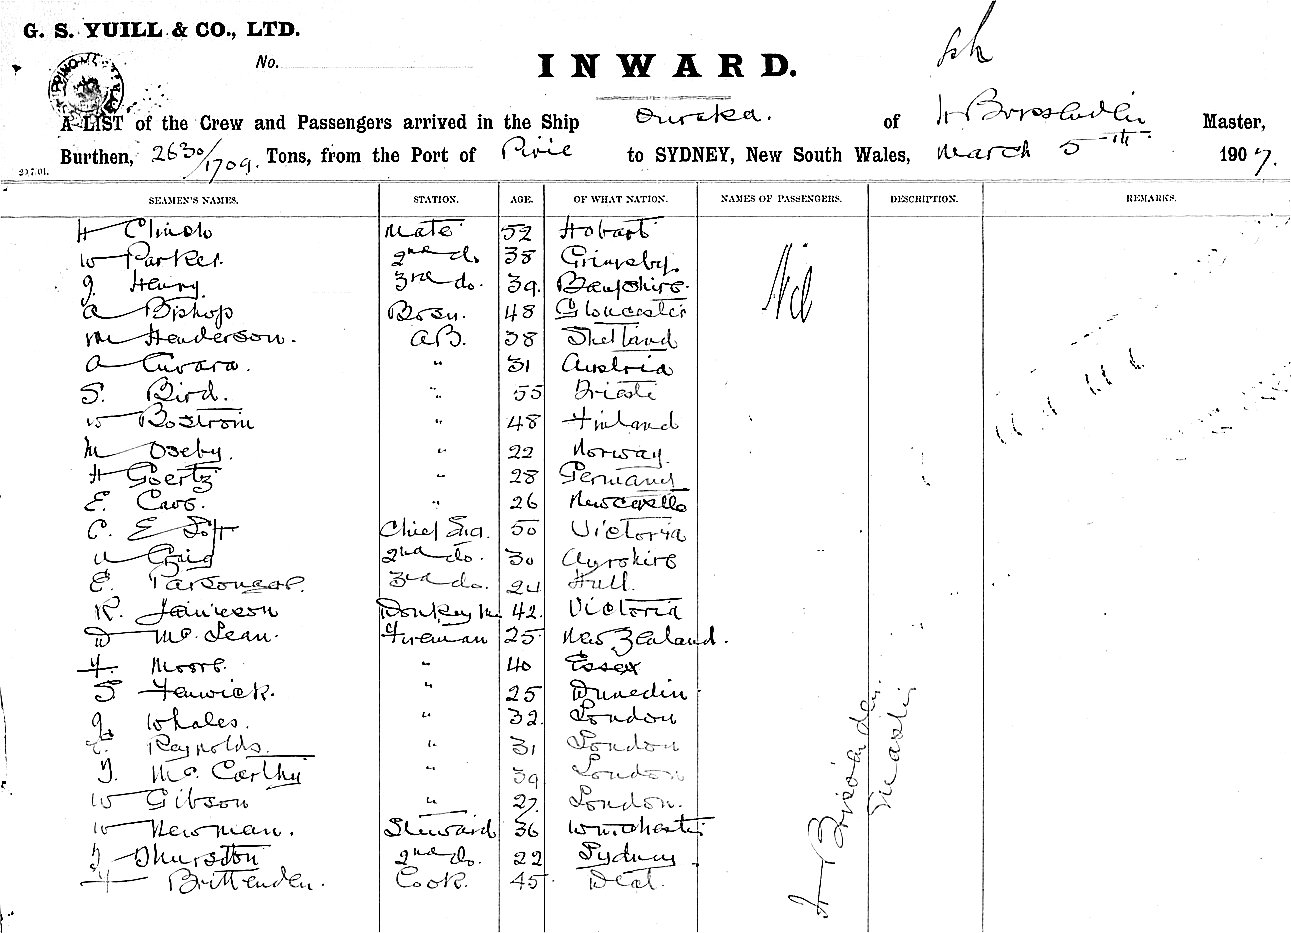 G. S. YUILL & CO., LTD.
No.
INWARD.
A LIST of the Crew and Passengers arrived in the Ship Ouraka. of Master,
Burthen, 2630/1709. Tons, from the Port of Pirie to SYDNEY, New South Wales, March 5th 1907.
SEAMEN'S NAMES. STATION. AGE. OF WHAT NATION. NAMES OF PASSENGERS. DESCRIPTION. REMARKS.
H Mate 52 Hobart
W Parker. 2nd do. 38 Grimsby.
J. Henry. 3rd do. 39.
A Bishop Bosn. 48 Gloucester Nil
M Henderson. A.B. 38 Shetland
A " 31 Austria
S. Bird. " 55
W Bostrom " 48 Finland
M Oseby. " 22 Norway.
H Goertz " 28 Germany
E. " 26 Newcastle
C. E 50 Victoria
Craig 2nd do. 30 Ayrshire
E. 3rd do. 24 Hull.
R. Jamieson 42. Victoria
D McLean. Fireman 25 New Zealand.
F. Moore. " 40 Essex
S Fenwick. " 25 Dunedin
J. Whales. " 32. London
Reynolds. " 31 London
J. McCarthy " 39 London
W Gibson " 27. London.
W Newman. Steward 36 Winchester
J Thurston 2nd do. 22 Sydney.
F Brittenden. Cook. 45. Deal.
Master